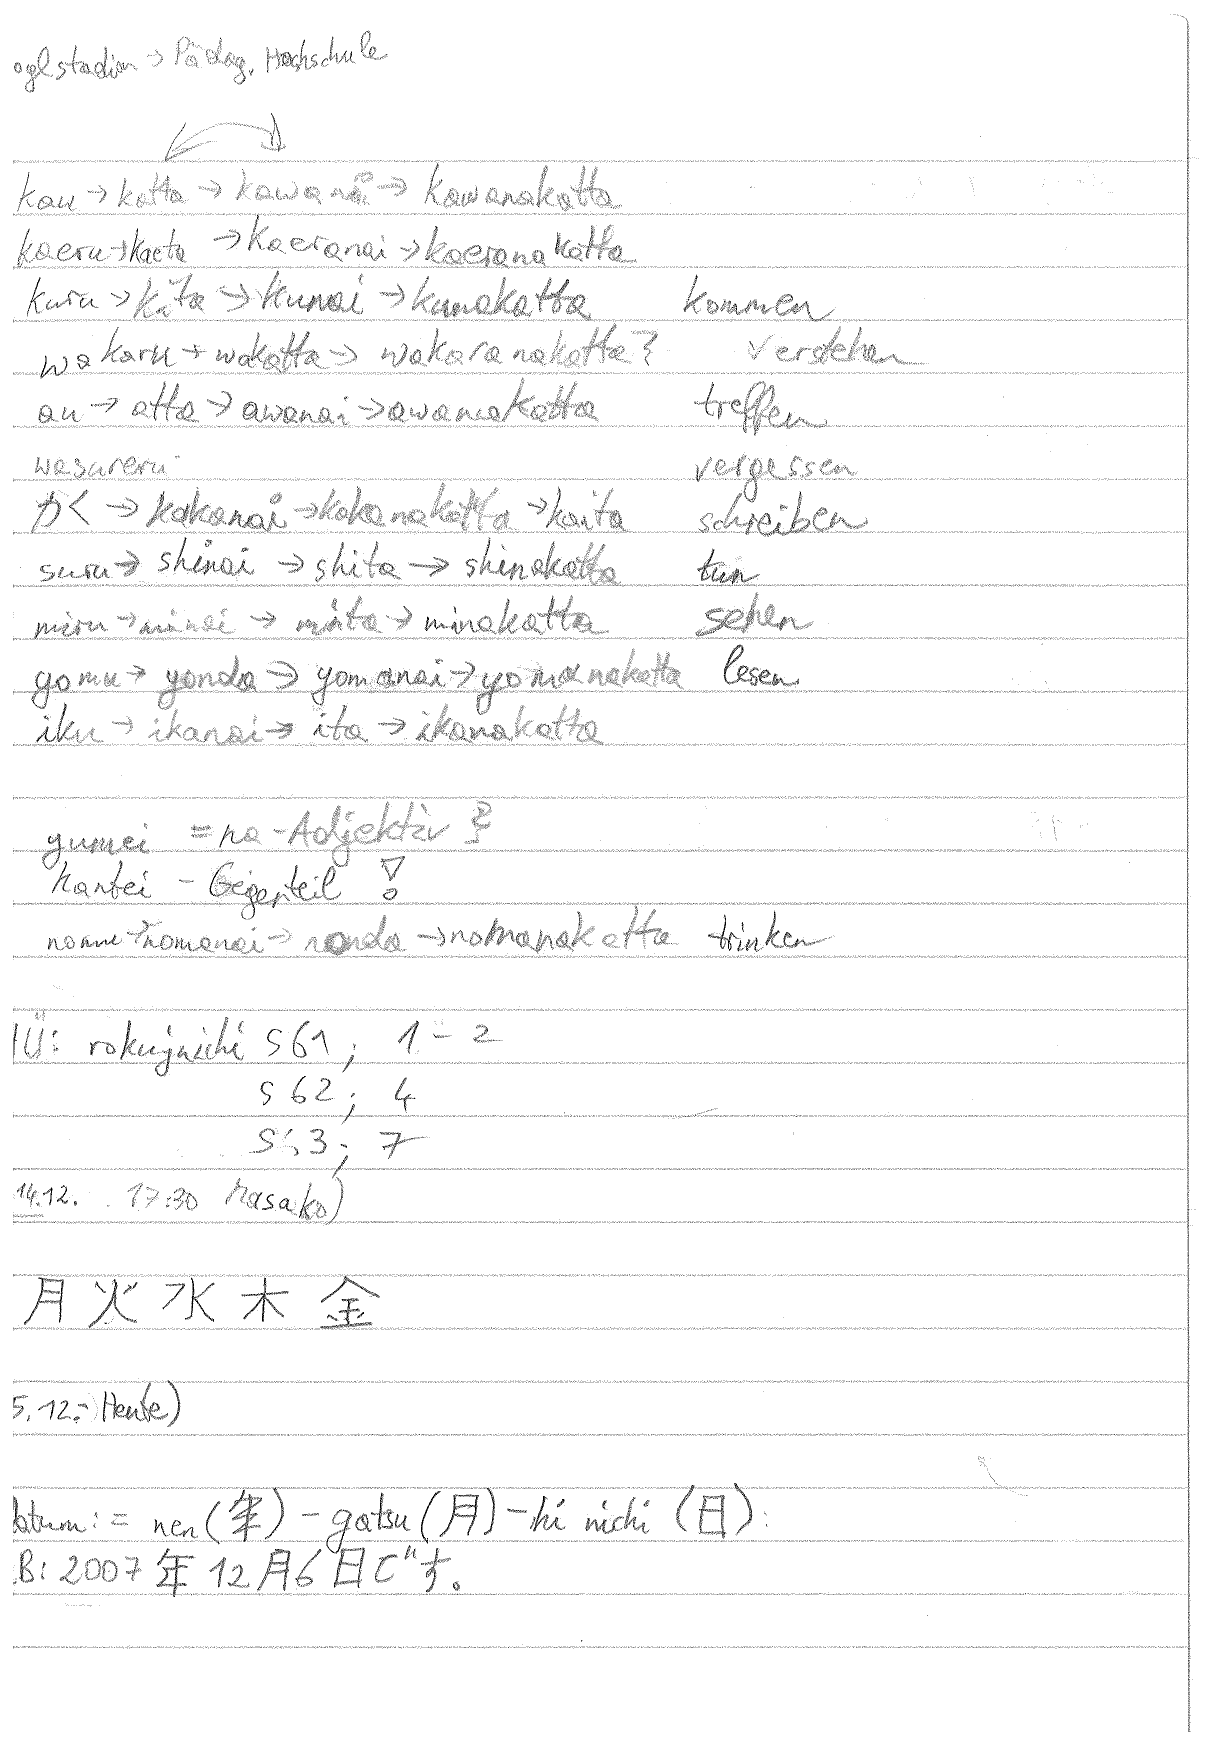 oglstadion → Pädag. Hochschule
kau → katta → kawanai → kawanakatta
kaeru → kaeta → kaeranai → kaeranakatta
kuru → kita → kunai → kunakatta kommen
wakaru → wakatta → wakaranakatta } verstehen
au → atta → awanai → awanakatta treffen
wasureru vergessen
かく → kakanai → kakanakatta → kaita schreiben
suru → shinai → shita → shinakatta tun
miru → minai → mita → minakatta sehen
yomu → yonda → yomanai → yomanakatta lesen
iku → ikanai → ita → ikanakatta
yumei = na-Adjektiv }
kantei - Gegenteil !
nomu → nomanai → nonda → nomanakatta trinken
HÜ: rokujnichi S61; 1-2
S62; 4
S63; 7
14.12. 17:30 Masako)
月 火 水 木 金
5.12.- Heute)
Datum: = nen (年) - gatsu (月) - hi nichi (日):
B: 2007年12月6日です。